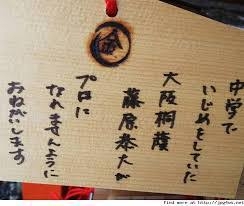 金
中学で
いじめをしていた
大阪桐蔭
藤原恭大が
プロに
なれませんように
おねがいします
Find more at www.jpgfun.net